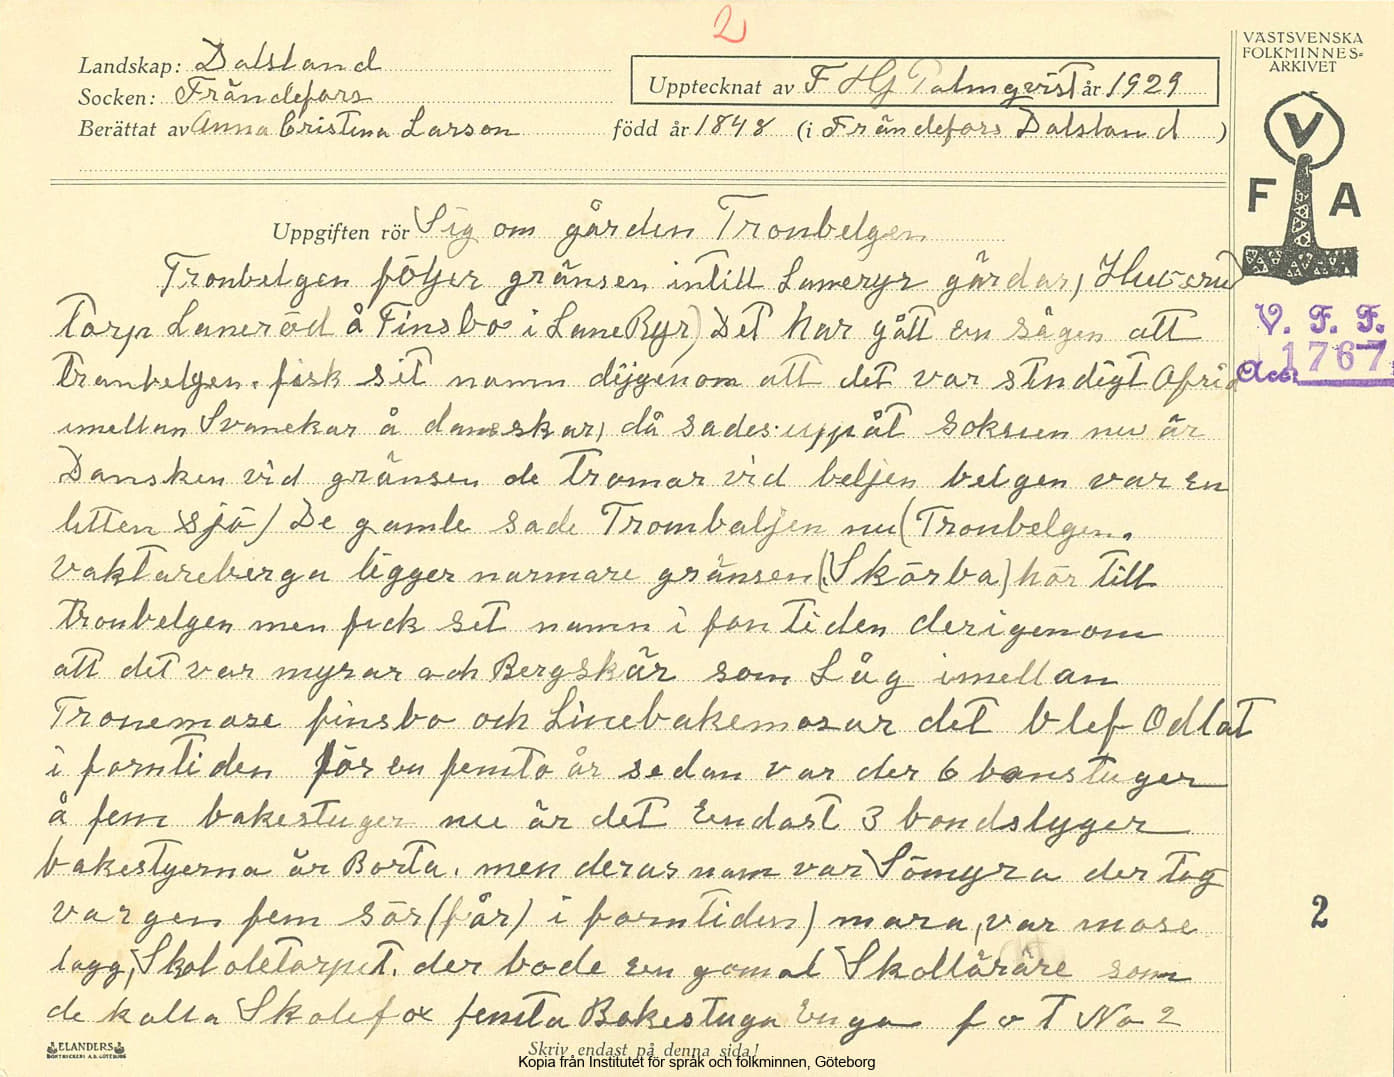 2
VÄSTSVENSKA
FOLKMINNES-
ARKIVET
V
F A
Landskap: Dalsland
Socken: Frändefors
Upptecknat av F HG Palmqvist år 1929
Berättat av Anna Cristina Larson född år 1848 (i Frändefors Dalsland )
V. F. F.
Acc. 1767
Uppgiften rör Sig om gården Tronbelgen
Tronbelgen följer gränsen intill Laneryr gårdar,
torp Laneröd å Finsbo i LaneRyr) Det har gått en sägen att
Tranbelgen. fisk sit namn dijgenom att det var stndigt Ofrid
imellan Svanekar å danskar, då sades uppåt soknen nu är
Dansken vid gränsen de tromar vid beljen belgen var en
litten sjö) De gamle sade Trombaljen nu (Tronbelgen.
Vaktareberga ligger narmare gränsen (Skörba) hör till
Tronbelgen men fick set namn i fontiden derigenom
att det var myrar och Bergskär som Låg imellan
Tronemose finsbo och Linebakemosar det blef Odlat
i forntiden för en femto år sedan var der 6 bonstuger
å fem bakestuger nu är det Endast 3 bondstyger
bakestyerna är Borta. men deras nam var Sömyra der tog
vargen fem sör (får) i forntiden) mara, var mose
lagg, Skololetorpet. der bode en gamal Skollärare som
de kalla Skolefox femta Bakestuga Enga f o t No 2
2
ELANDERS
BOKTRYCKERI A.B. GÖTEBORG
Skriv endast på denna sida!
Kopia från Institutet för språk och folkminnen, Göteborg